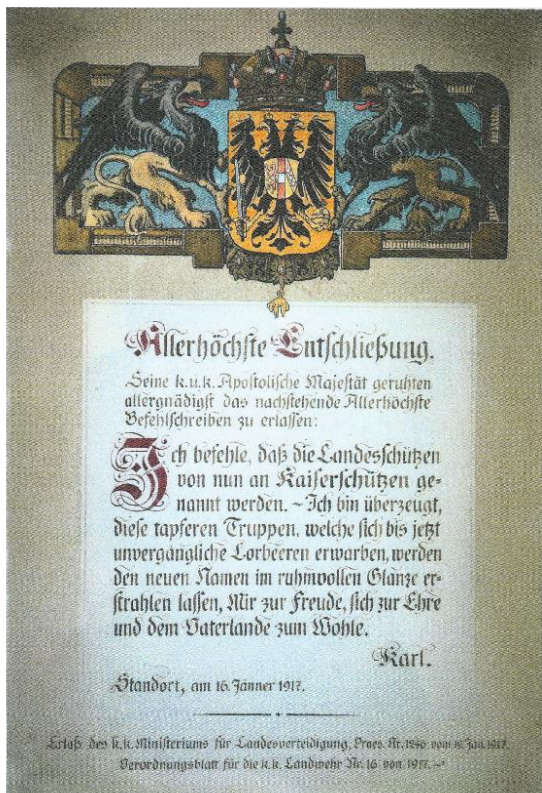 Allerhöchste Entschließung.
Seine k.u.k. Apostolische Majestät geruhten
allergnädigst das nachstehende Allerhöchste
Befehlschreiben zu erlassen:
Ich befehle, daß die Landesschützen
von nun an Kaiserschützen ge-
nannt werden. ~ Ich bin überzeugt,
diese tapferen Truppen, welche sich bis jetzt
unvergängliche Lorbeeren erwarben, werden
den neuen Namen im ruhmvollen Glanze er-
strahlen lassen, Mir zur Freude, sich zur Ehre
und dem Vaterlande zum Wohle.
Karl.
Standort, am 16. Jänner 1917.
Erlaß des k.k. Ministeriums für Landesverteidigung, Praes. Nr. 1246 vom Jan. 1917.
Verordnungsblatt für die k.k. Landwehr Nr. 16 von 1917. ~